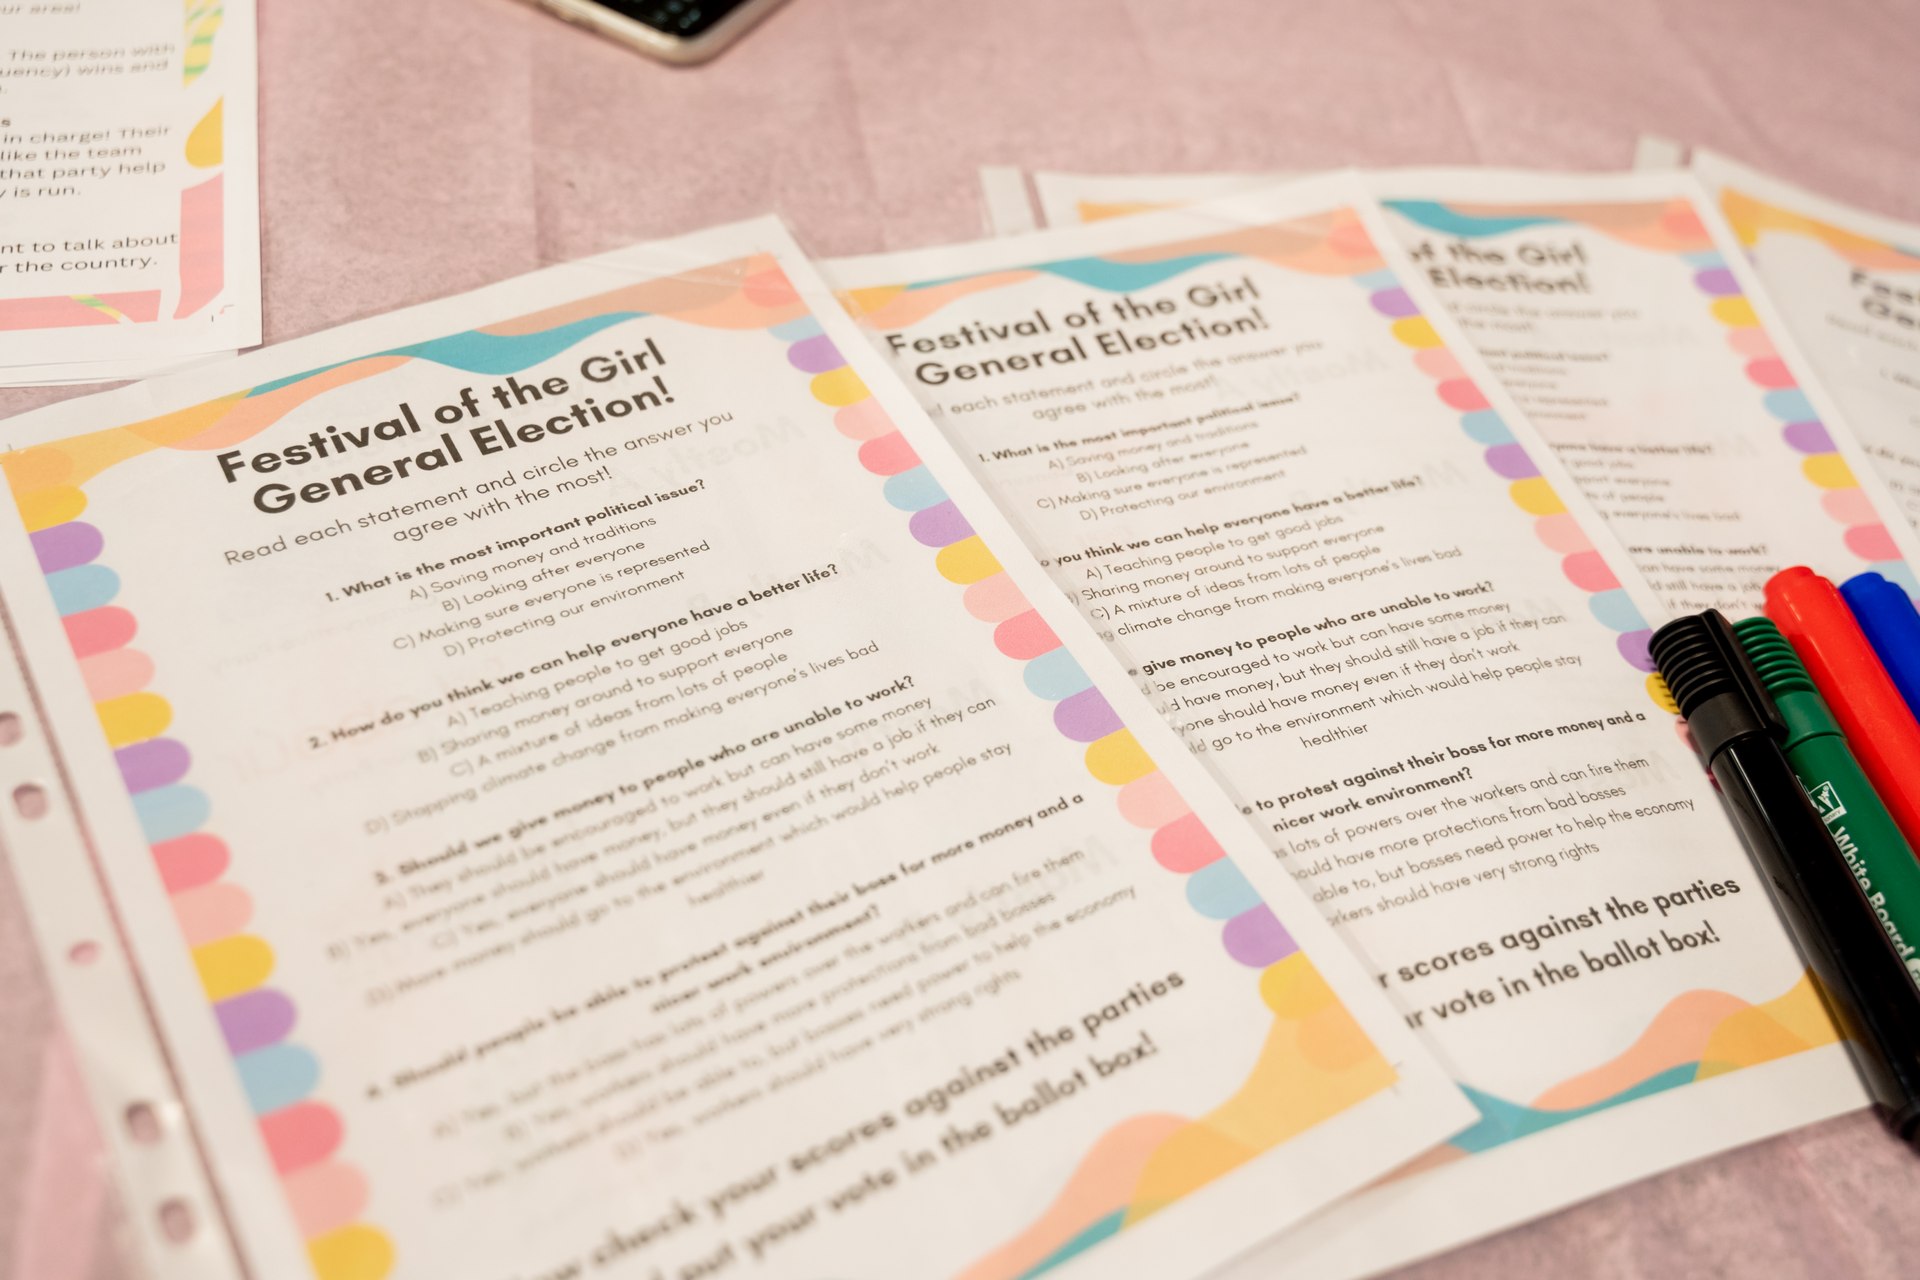 our area!
The person with
uency) wins and
s
in charge! Their
like the team
that party help
y is run.
nt to talk about
r the country.
Festival of the Girl
General Election!
Read each statement and circle the answer you
agree with the most!
1. What is the most important political issue?
A) Saving money and traditions
B) Looking after everyone
C) Making sure everyone is represented
D) Protecting our environment
2. How do you think we can help everyone have a better life?
A) Teaching people to get good jobs
B) Sharing money around to support everyone
C) A mixture of ideas from lots of people
D) Stopping climate change from making everyone's lives bad
3. Should we give money to people who are unable to work?
A) They should be encouraged to work but can have some money
B) Yes, everyone should have money, but they should still have a job if they can
C) Yes, everyone should have money even if they don't work
D) More money should go to the environment which would help people stay
healthier
4. Should people be able to protest against their boss for more money and a
nicer work environment?
A) Yes, but the boss has lots of powers over the workers and can fire them
B) Yes, workers should have more protections from bad bosses
C) Yes, workers should be able to, but bosses need power to help the economy
D) Yes, workers should have very strong rights
check your scores against the parties
out your vote in the ballot box!
Festival of the Girl
General Election!
each statement and circle the answer you
agree with the most!
1. What is the most important political issue?
A) Saving money and traditions
B) Looking after everyone
C) Making sure everyone is represented
D) Protecting our environment
you think we can help everyone have a better life?
A) Teaching people to get good jobs
Sharing money around to support everyone
C) A mixture of ideas from lots of people
climate change from making everyone's lives bad
give money to people who are unable to work?
be encouraged to work but can have some money
have money, but they should still have a job if they can
one should have money even if they don't work
go to the environment which would help people stay
healthier
to protest against their boss for more money and a
nicer work environment?
lots of powers over the workers and can fire them
should have more protections from bad bosses
able to, but bosses need power to help the economy
workers should have very strong rights
r scores against the parties
ur vote in the ballot box!
of the Girl
Election!
circle the answer you
the most!
have a better life?
good jobs
support everyone
of people
everyone's lives bad
are unable to work?
can have some money
still have a job
if they don't
White Board